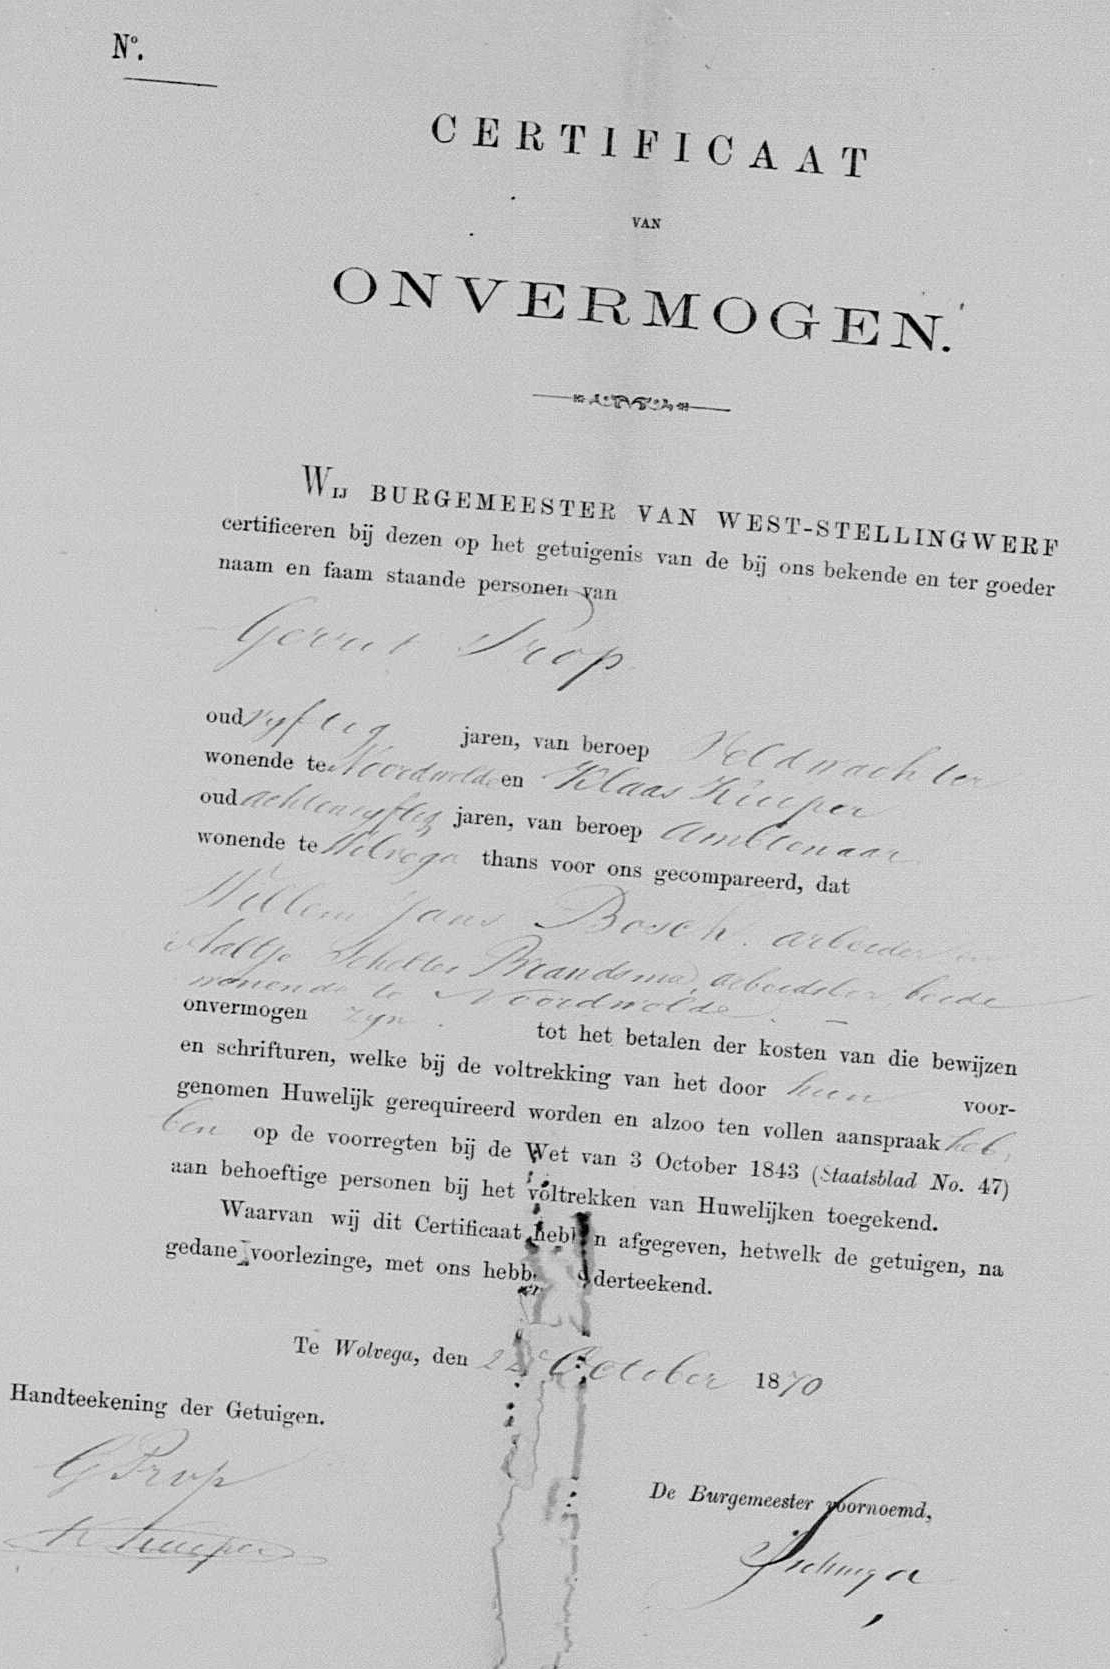 No.
CERTIFICAAT
VAN
ONVERMOGEN.
Wij BURGEMEESTER VAN WEST-STELLINGWERF
certificeren bij dezen op het getuigenis van de bij ons bekende en ter goeder
naam en faam staande personen van
Gerrit Prop
oud vyftig jaren, van beroep Veldwachter
wonende te Noordwolde en Klaas Kuiper
oud achtenvyftig jaren, van beroep Ambtenaar
wonende te Wolvega thans voor ons gecompareerd, dat
Willem Jans Bosch arbeider en
Aaltje Scheltes Brandsma, arbeidster beide
wonende te Noordwolde
onvermogen zyn tot het betalen der kosten van die bewijzen
en schrifturen, welke bij de voltrekking van het door hun voor-
genomen Huwelijk gerequireerd worden en alzoo ten vollen aanspraak heb,
ben op de voorregten bij de Wet van 3 October 1843 (Staatsblad No. 47)
aan behoeftige personen bij het voltrekken van Huwelijken toegekend.
Waarvan wij dit Certificaat hebben afgegeven, hetwelk de getuigen, na
gedane voorlezinge, met ons hebb derteekend.
Te Wolvega, den October 1870
Handteekening der Getuigen.
G Prop
K Kuiper
De Burgemeester voornoemd,